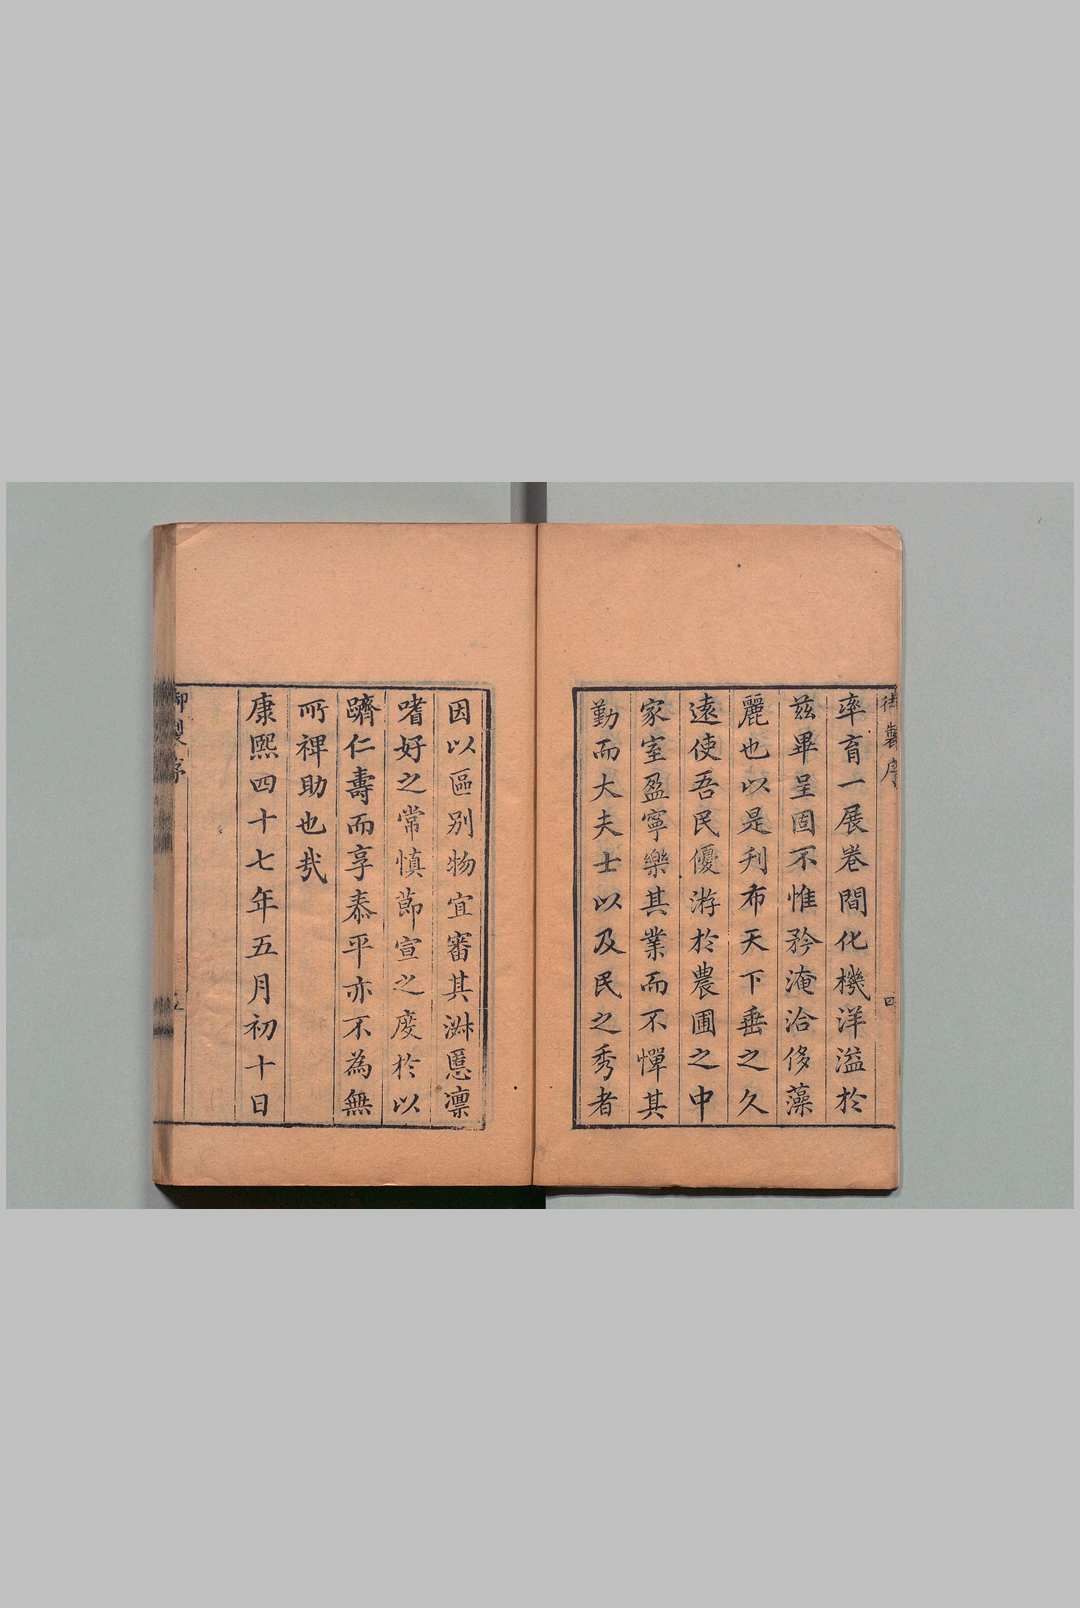 御製序
四
率育一展卷間化機洋溢於
茲畢呈固不惟矜淹洽侈藻
麗也以是刋布天下垂之久
遠使吾民優游於農圃之中
家室盈寧樂其業而不憚其
勤而大夫士以及民之秀者
因以區別物宜審其淑慝凛
嗜好之常慎節宣之度於以
躋仁壽而享泰平亦不為無
所裨助也哉
康熙四十七年五月初十日
御製序